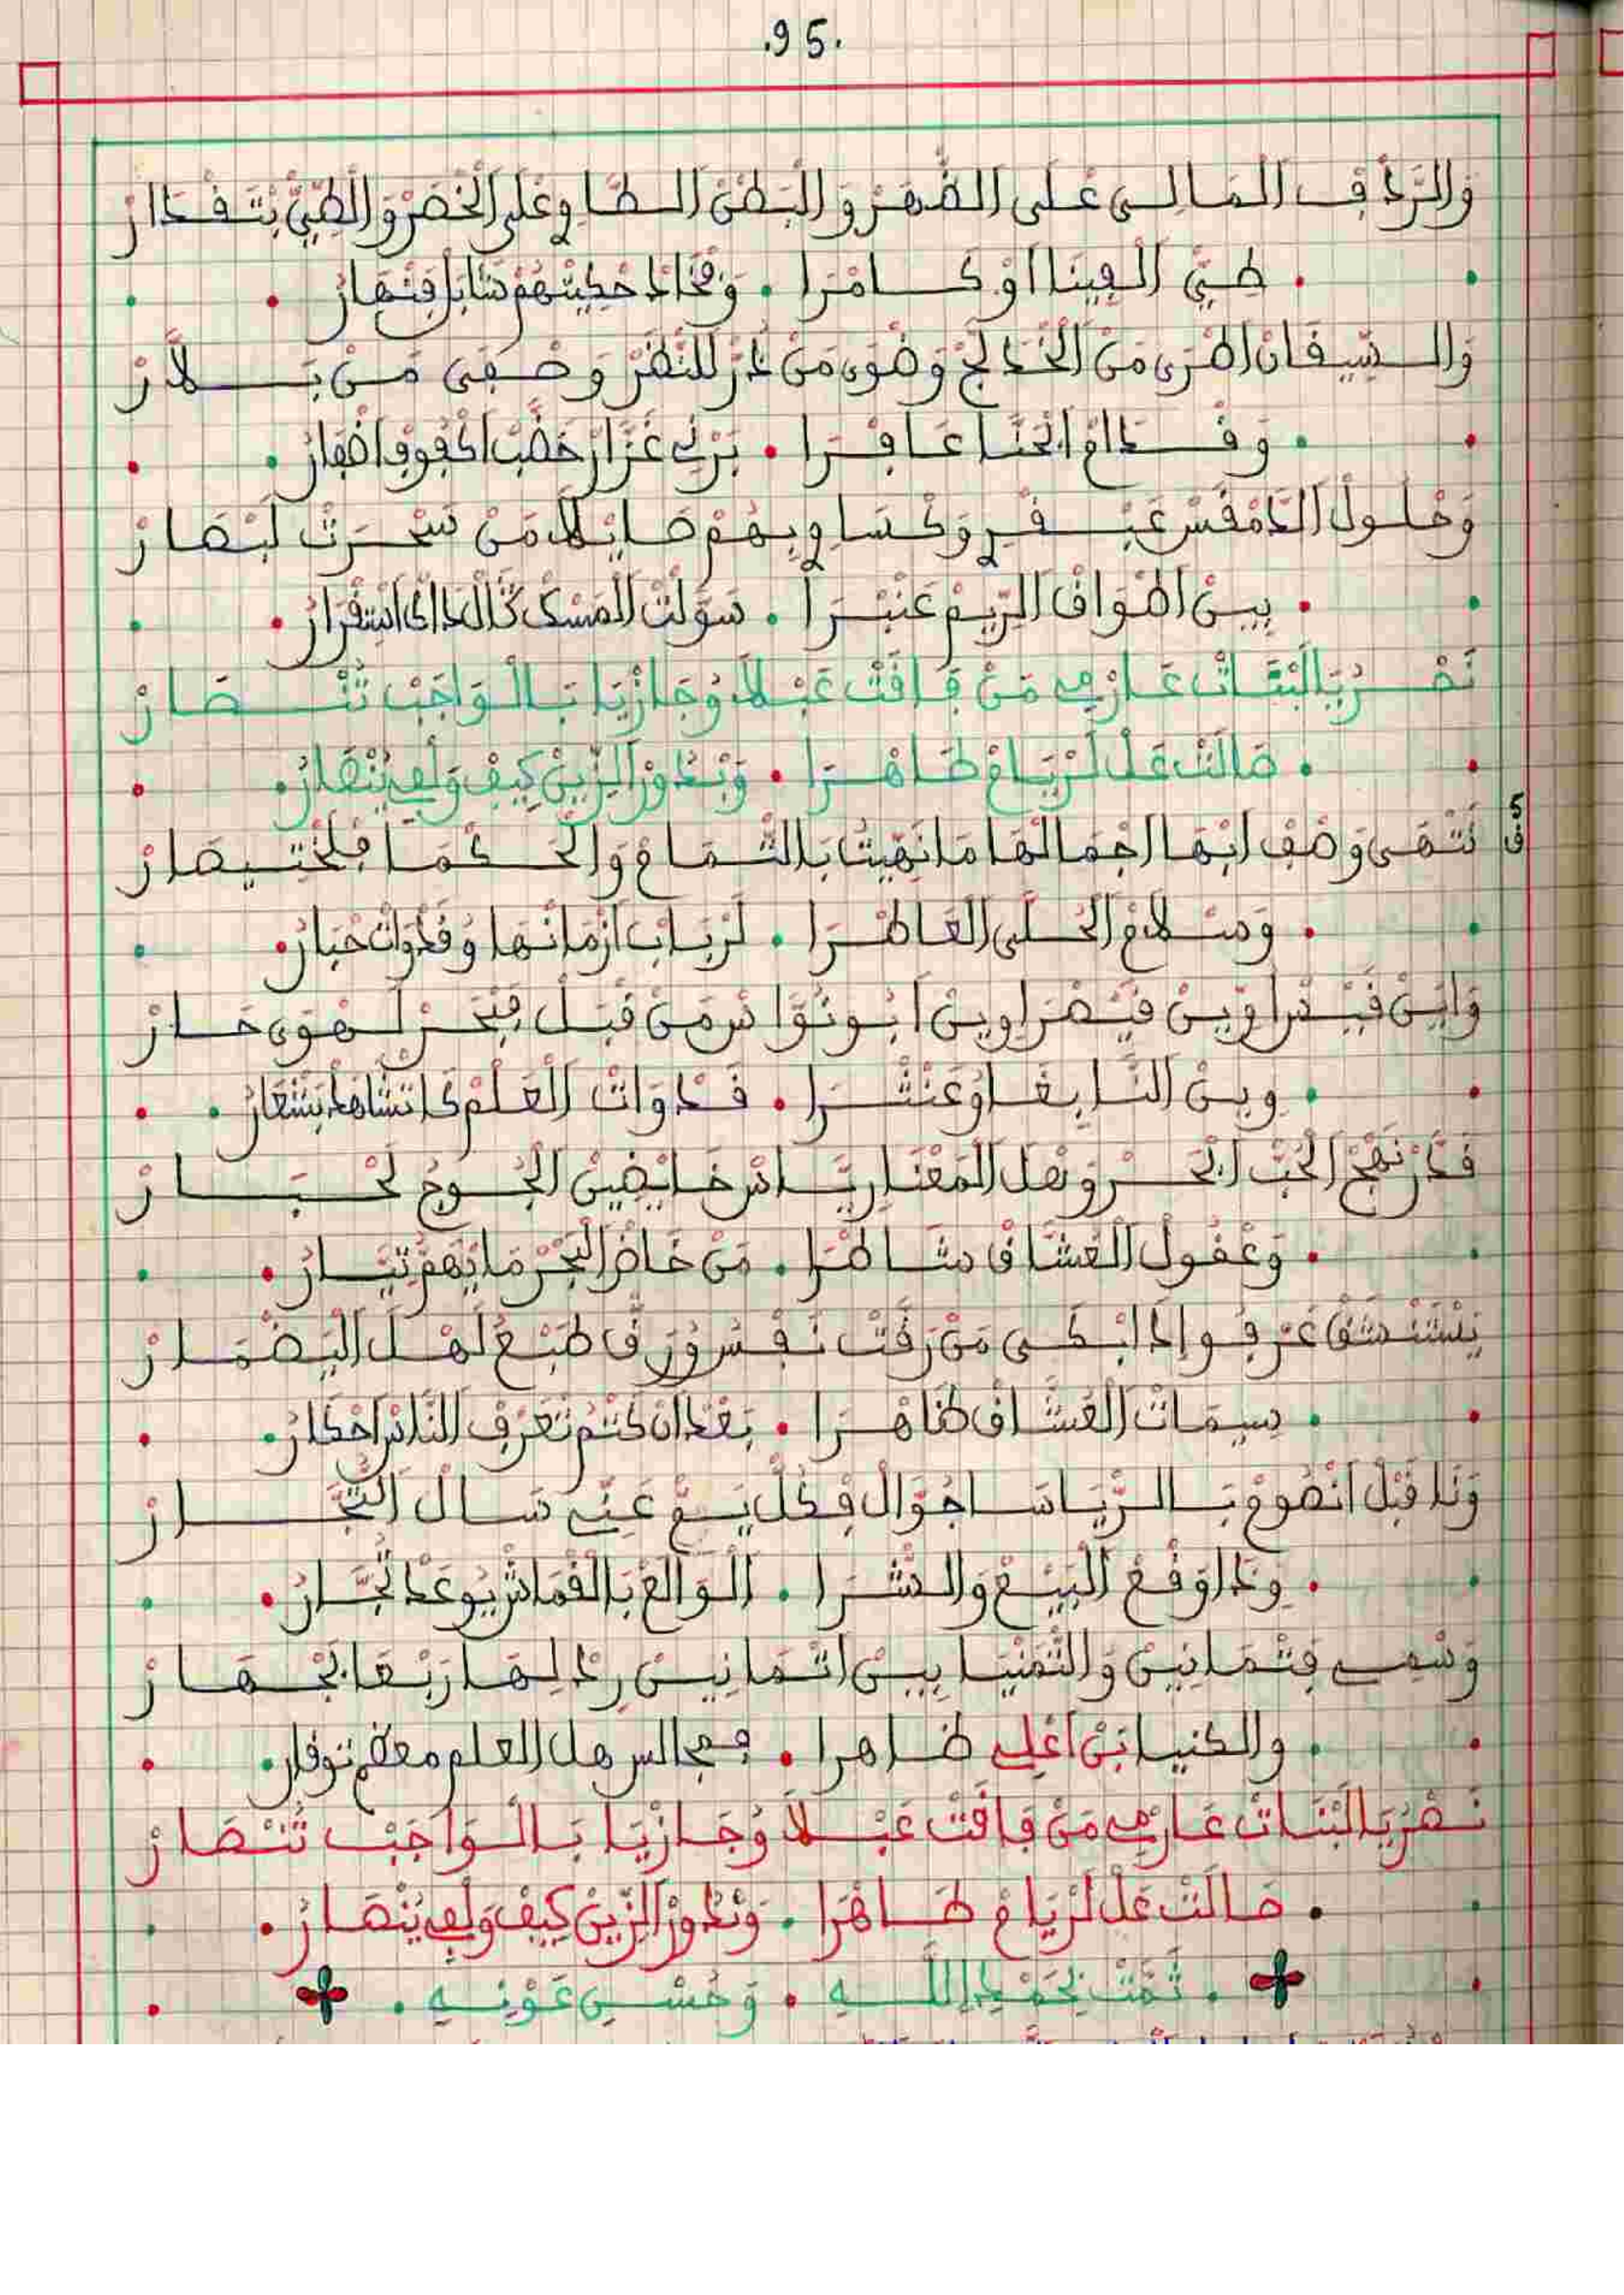 .95.
وَالرَّدْفِ الْمَالِي عْلَى الضْهَرْ وَالْبَطْنْ الطَّاوِي عْلَى الْخْصَرْ وَالطَّيّْ بْتَقْدَارْ
طَيّْ الْفِينَا أَوْ كَامْرَا . وَفْخَادْ حْكِيتْهُمْ شَابَلْ فِنْهَارْ
وَالسِّيقَانْ اطْرَى مَنْ الْخْدَلَّجْ وَضْوَى مَنْ دَرّْ لِلنّْظَرْ وَصْفَى مَنْ بَلاَّرْ
وَقْدَامْ الْحَنَّا عَافْرَا . بَرْنِي غَزَّارْ خَضَّبْ اكْفُوفْ اضْفَارْ
وَحْلُولْ الدَّمْقَسْ عَبْقْرِي وَكْسَاوِي بِهُمْ صَايْلَا مَنْ سَحْرَتْ لَبْصَارْ
بِينْ اطْوَاقْ الرِّيمْ عَنْبْرَا . سَوَّلْتْ الْمَسْكْ قَالْ
نَصْرُ يَا لَبْنَاتْ عَارْمِي مَنْ فَاقَتْ عَبْلَا وُجَازْيَا بَالْوَاجَبْ تَنْصَارْ
صَالَتْ عَلْ لَرْيَامْ طَاهْرَا . وَبْدُورْ الزِّينْ كِيفْ وَلْفِي يُنْصَارْ
ق5
نَتْهَى وَصْفِ ابْهَا اجْمَالْهَا مَا نَهِيتْ بَالتّْمَامْ وَالْحَكْمَا فَلَخْتِيصَارْ
وَسْلَامْ الْحُلَّى الْعَاطْرَا . لَرْبَابْ ازْمَانْهَا وُقَدْوَاتْ حْبَارْ
وَايْنْ قَيْسْ اوِينْ قَيْصْرَا وِينْ ابُو نُوَّاسْ مَنْ قْبَلْ فِبْحَرْ لَهْوَى حَارْ
وِينْ النَّابِغَا وُعَنْتْرَا . قَدْوَاتْ الْعَلْمْ
نَهْجْ الْحُبّْ الْحَرّْ وَهْلْ الْمَعْنَا رِيَّاسْ خَايْضِينْ الْجُوجْ لَحْبَارْ
وَعْقُولْ الْعُشَّاقْ شَاطْرَا . مَنْ خَاضْ الْبْحَرْ مَا يْهَمُّ تِيَّارْ
يَسْتَنْشَقْ عَرْفُو إِذَا ابْكَى مَنْ رَقَّتْ نَفْسُ وُرَقّْ طَبْعُ لَهْلْ الْبَضْمَارْ
سِيمَاتْ الْعُشَّاقْ ظَاهْرَا . بَعْدْ انْ كَتَّمْ تَعْرَفْ النَّاسْ احْكَارْ
وَنَا قْبَلْ انْصُومْ بَالرّْيَاسَا جَوَّالْ فِكُلّْ يَمّْ عَنِّي سَالْ التُّجَّارْ
وَنْدَا وَقْعْ الْبَيْعْ وَالشّْرَا . الْوَالَعْ بَالْقْمَاشْ يُوعَدْ تُجَّارْ
وَسْمِي فِتْمَانِينْ وَالثّْمَنْيَا بِينْ اثْمَانِينْ رِدْ لِهَا رَبْعَا بَجْهَارْ
والكنيا بَنْ اعْلِي ظاهرا . فمجالس هل العلم معظم توقار
نَصْرُ يَا لَبْنَاتْ عَارْمِي مَنْ فَاقَتْ عَبْلَا وُجَازْيَا بَالْوَاجَبْ تَنْصَارْ
صَالَتْ عَلْ لَرْيَامْ طَاهْرَا . وَبْدُورْ الزِّينْ كِيفْ وَلْفِي يُنْصَارْ
. تَمَّتْ بِحَمْدِ اللَّهِ . وَحُسْنِ عَوْنِهِ .